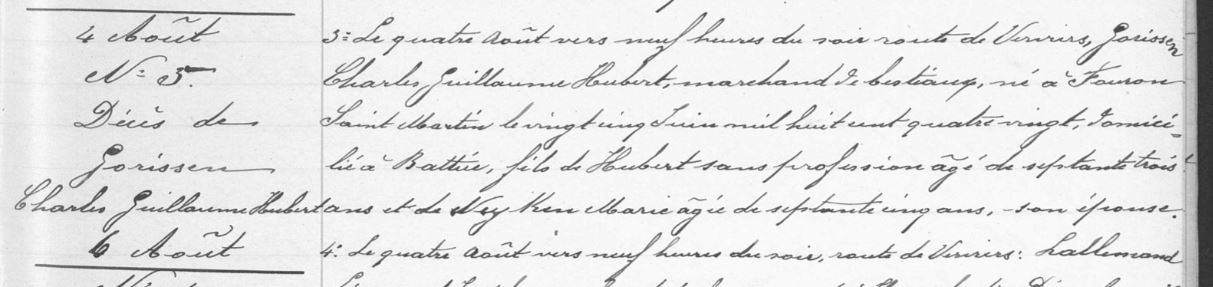 4 Août
N: 5.
Décès de
Gorissen
Charles Guillaume Hubert
6 Août
3: Le quatre Août vers neuf heures du soir route de Verviers, Gorissen
Charles, Guillaume Hubert, marchand de bestiaux, né à Fouron
Saint Martin le vingt cinq Juin mil huit cent quatre vingt, domici=
lié à Battice, fils de Hubert sans profession âgé de septante trois
ans et de Ney Ken Marie âgée de septante cinq ans, son épouse.
4: Le quatre Août vers neuf heures du soir, route de Verviers: Lallemand